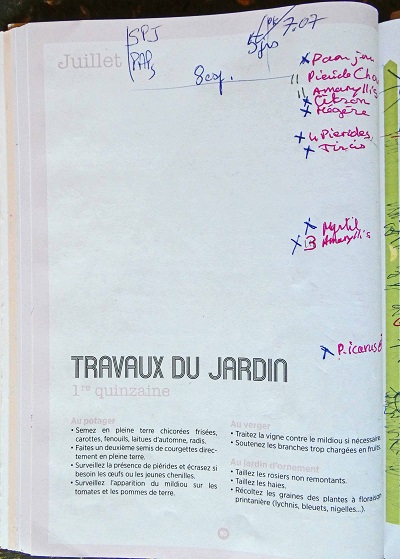 Juillet
SPJ
PAPs
8 esp.
7.07
x Paon jou
" Pieride Cho
" Amaryllis
x Citron
x Mégère
x 4 Pierides
x Tircis
x Myrtil
x 3 Amaryllis
x P. icarus
TRAVAUX DU JARDIN
1re quinzaine
Au potager
• Semez en pleine terre chicorées frisées,
carottes, fenouils, laitues d'automne, radis.
• Faites un deuxième semis de courgettes direc-
tement en pleine terre.
• Surveillez la présence de piérides et écrasez si
besoin les œufs ou les jeunes chenilles.
• Surveillez l'apparition du mildiou sur les
tomates et les pommes de terre.
Au verger
• Traitez la vigne contre le mildiou si nécessaire.
• Soutenez les branches trop chargées en fruits.
Au jardin d'ornement
• Taillez les rosiers non remontants.
• Taillez les haies.
• Récoltez les graines des plantes à floraison
printanière (lychnis, bleuets, nigelles...).